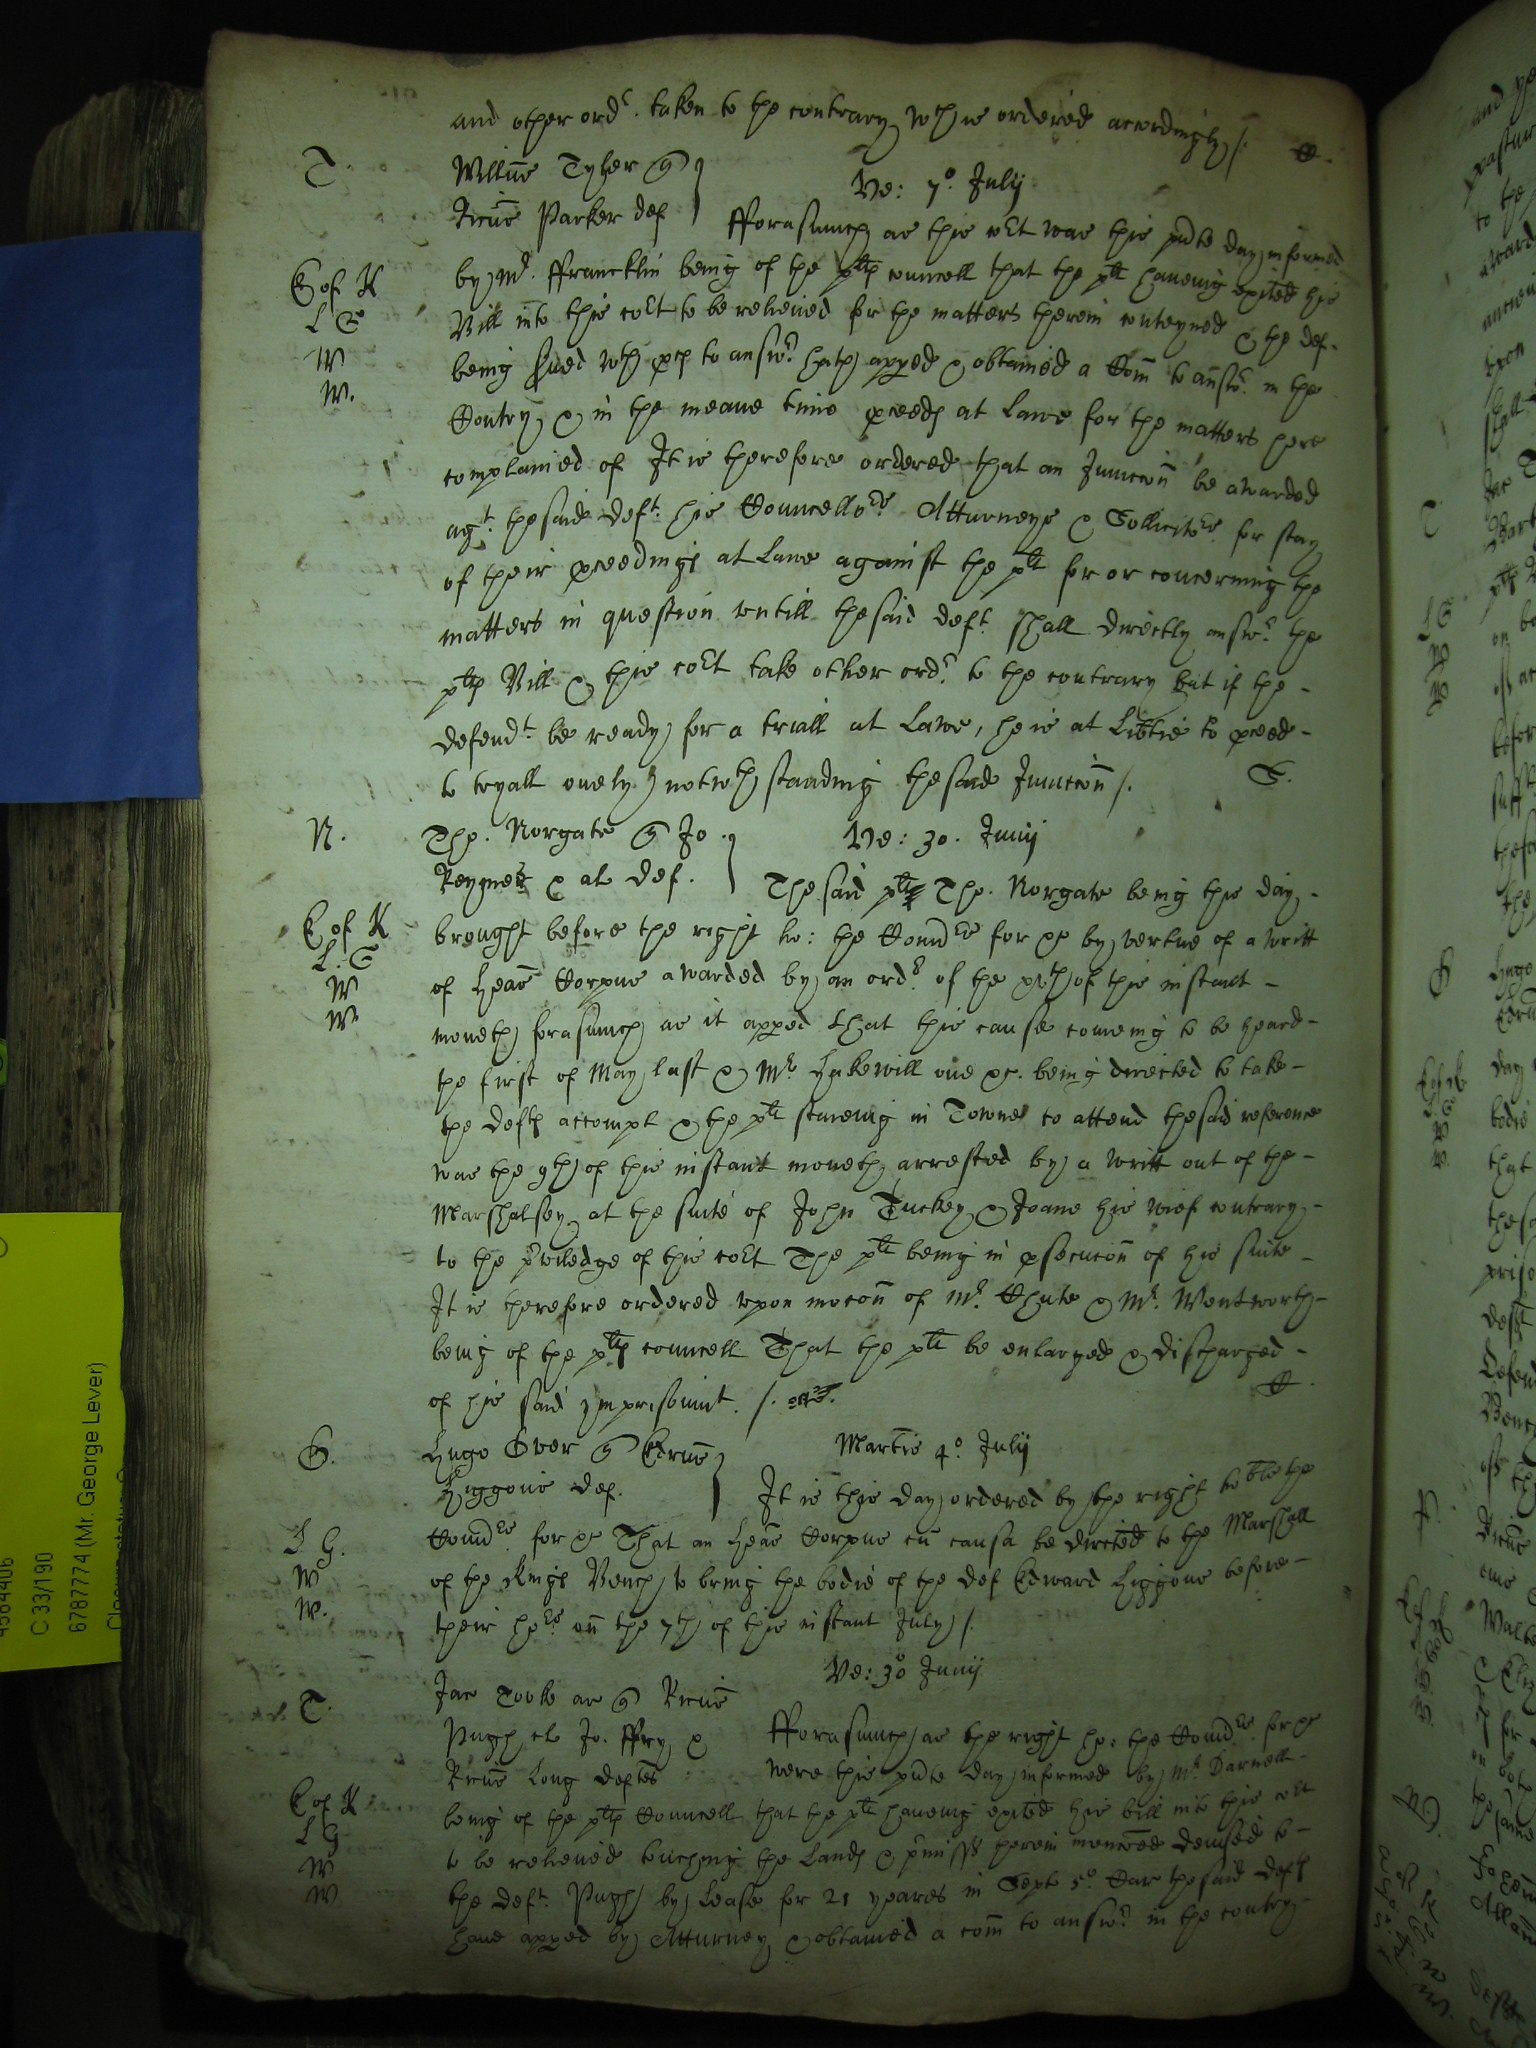 and other ordr. taken to the contrary wch is ordered accordingly /.
T.
Willms Tyher q
Ricus Parker def
Ve: 7o. July
fforasmuch as this cort was this pnte day informed
E of K
L G
W
W.
by Mr. ffrancklin being of the plts councell that the plt haveing exited his
Bill into this cort to be releived for the matters therein conteyned & the def-
being served wth pces to answr hath apped & obtained a Com to answr. in the
Contry & in the meane time pceeds at Lawe for the matters here
complained of It is therefore ordered that an Iniunccon be awarded
agt. the said deft. his Councellors Atturneys & Sollicitrs for stay
of their pceedings at Lawe against the plt for or concerning the
matters in question untill the said deft. shall directly answr. the
plts Bill & this cort take other ordr. to the contrary but if the -
defendt. be ready for a triall at Lawe, he is at Libtie to pceed -
to tryall onely notwth standing the said Iniunccon /.
N.
Tho. Norgate q Jo.
Reynes & al def.
Ve: 30. Junij
The said plt Tho. Norgate being this day -
E of K
L. G
W
W
brought before the right ho: the Comrs for &c by vertue of a writt
of Heas Corpus awarded by an ordr. of the xvth of this instant -
moneth forasmuch as it apped that this cause comeing to be heard -
the first of May last & Mr. Hakewill one &c. being directed to take -
the defts accompt & the plt staieing in Towne to attend the said reference
was the 9th of this instant moneth arrested by a writt out of the -
Marshalsey at the suite of John Tuckey & Joane his wief contrary -
to the priviledge of this cort The plt being in psecucon of his suite -
It is therefore ordered upon mocon of Mr. Chute & Mr. Wentworth -
being of the plts councell That the plt be enlarged & discharged -
of his said imprisonmt. /.
G.
Hugo Over q Edrus
Higgons def.
Martis 4o July
It is this day ordered by the right hoble the
L G.
W
W.
Comrs for &c That an Heas Corpus cu causa be directed to the Marshall
of the Kings Bench to bring the bodie of the def Edward Higgons before -
their hors on the 7th of this instant July /.
Ve: 30 Junij
T.
Jac Tooke ar q Ricus
Pugh et Jo. ffry &
Ricus Long deftes
fforasmuch as the right ho: the Comrs. for &c
were this pnte day informed by Mr Darnell -
E of K
L G
W
W
being of the plts Councell that the plt haveing exited his bill into this cort
to be releived touching the Lands & pmisses herein menconed demised to -
the deft. Pugh by Lease for 21 yeares in Sept 5o. Car the said defts
have apped by Atturney & obtained a com to answr. in the contry -
C 33/190
6787774 (Mr. George Lever)